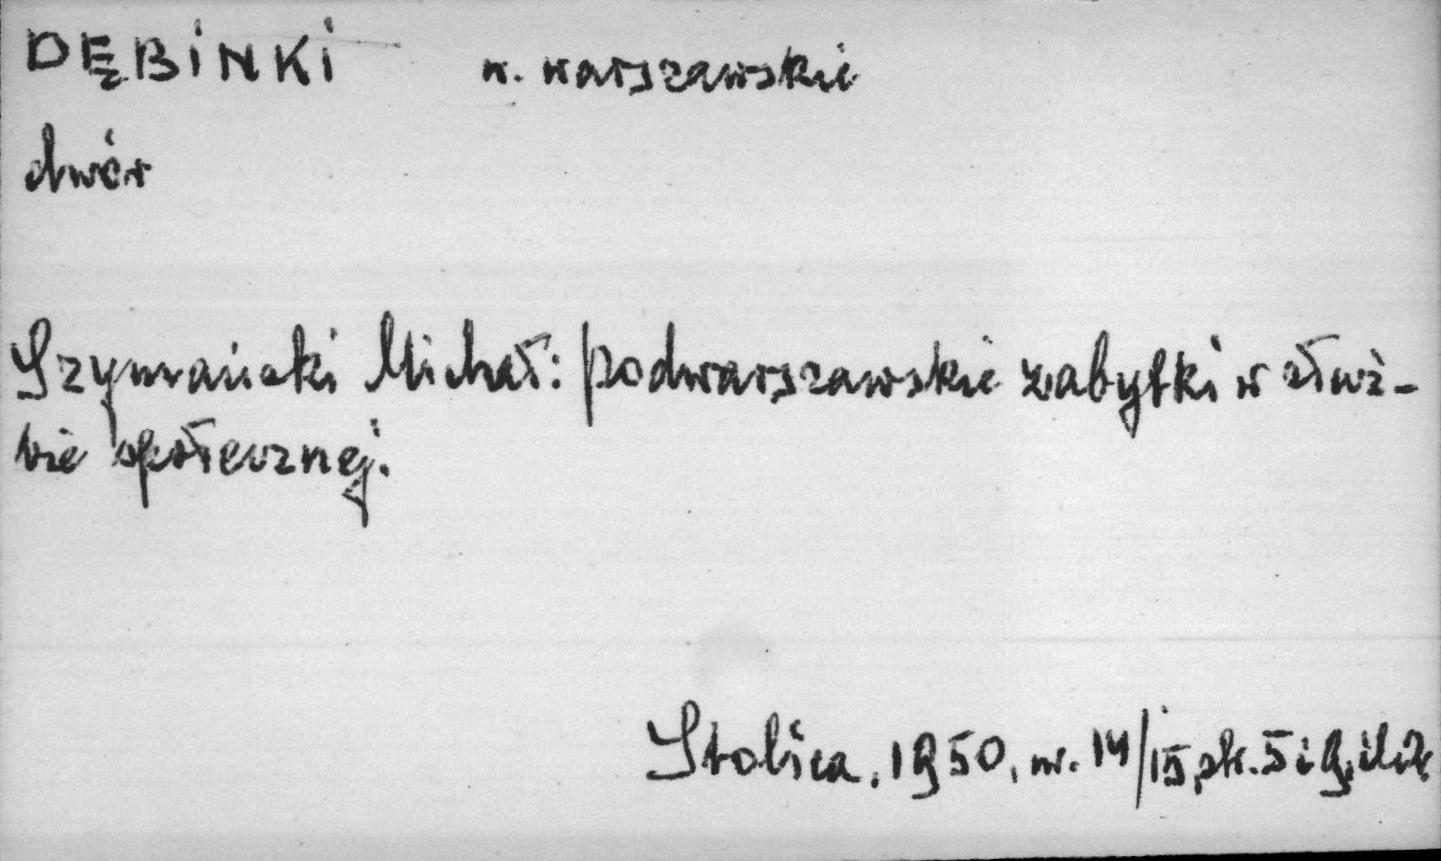 DĘBINKI w. warszawskie
dwór
Szymański Michał: podwarszawskie zabytki w służ-
bie społecznej.
Stolica, 1950, nr. 14/15, str. 5 i 9,